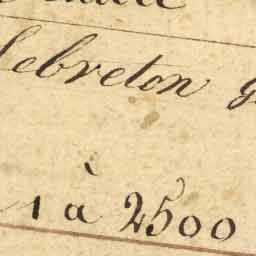 Lebreton
1 à 2500